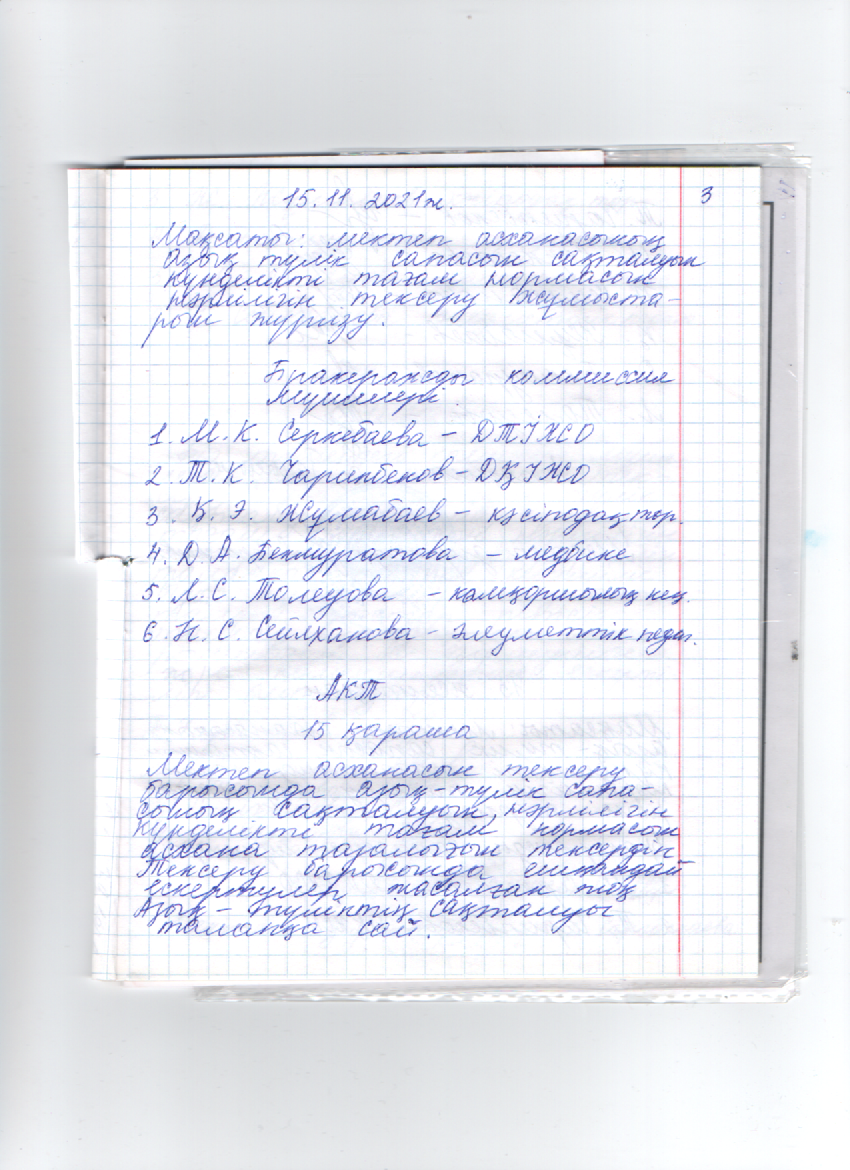 15.11.2021ж. 3
Мақсаты: мектеп асханасының
азық түлік сапасын сақталуын
күнделікті тағам нормасын
нәрлілігін тексеру жұмыста-
рын жүргізу.
Бракераждды коммиссия
мүшелері.
1. М.К. Серкебаева – ДТІЖО
2. Т.К. Чарипбеков – ДҚІЖО
3. Қ.Э. Жұмабаев – кәсіподақ төр.
4. Д.А. Бекмуратова – медбике
5. Л.С. Толеуова – қамқоршылық кең.
6. Н.С. Сейлханова – әлеуметтік педаг.
Акт
15 қараша
Мектеп асханасын тексеру
барысында азық-түлік сапа-
сының сақталуын, нәрлілігін
күнделікті тағам нормасын
асхана тазалығын тексердік
Тексеру барысында ешқандай
ескертулер жасалған жоқ
Азық-түліктің сақталуы
талапқа сай.